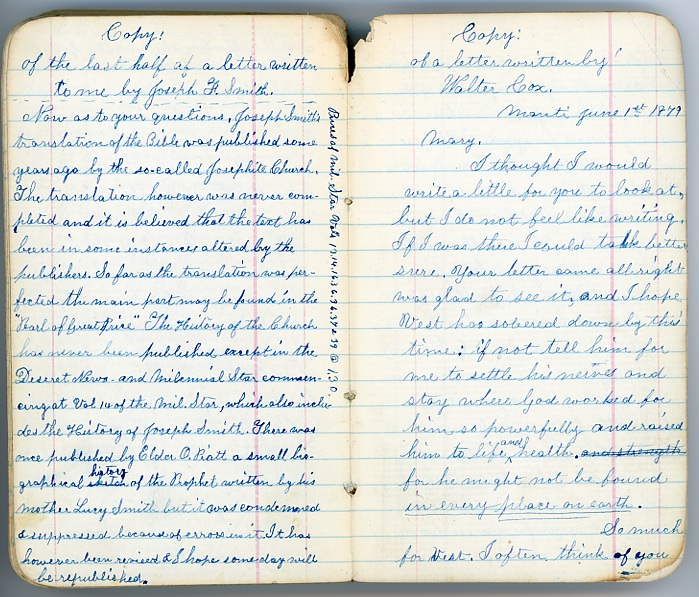 Copy:
of the last half of a letter written
to me by Joseph F. Smith.
Now as to your questions, Joseph Smith's
translation of the Bible was published some
years ago by the so-called Josephite Church.
The translation however was never com-
pleted and it is believed that the text has
been in some instances altered by the
publishers. So far as the translation was per-
fected the main part may be found in the
"Pearl of Great Price" The History of the Church
has never been published except in the
Deseret News and Milennial Star commen-
cing at Vol 14 of the Mil. Star, which also inclu-
des the History of Joseph Smith. There was
once published by Elder O. Pratt a small bio-
graphical sketch history of the Prophet written by his
mother Lucy Smith but it was condemned
& suppressed because of errors in it. It has
however been revised & I hope some day will
be republished.
of Mil. Star Vols
Copy:
of a letter written by
Walter Cox.
Manti June 1st 1879
Mary.
I thought I would
write a little for you to look at,
but I do not feel like writing.
If I was there I could talk better
sure. Your letter came all right
was glad to see it, and I hope
Vest has sobered down by this
time: if not tell him for
me to settle his nerves and
stay where God worked for
him so powerfully and raised
him to life and health, and strength
for he might not be found
in every place on earth.
So much
for Vest. I often think of you